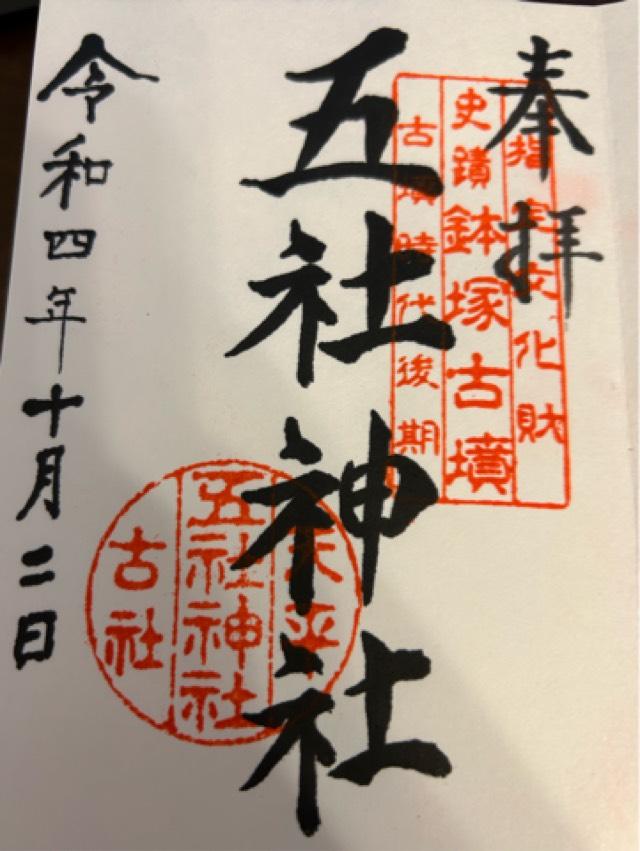 奉拝
指定文化財
史蹟鉢塚古墳
古墳時代後期
五社神社
天平
五社神社
古社
令和四年十月二日